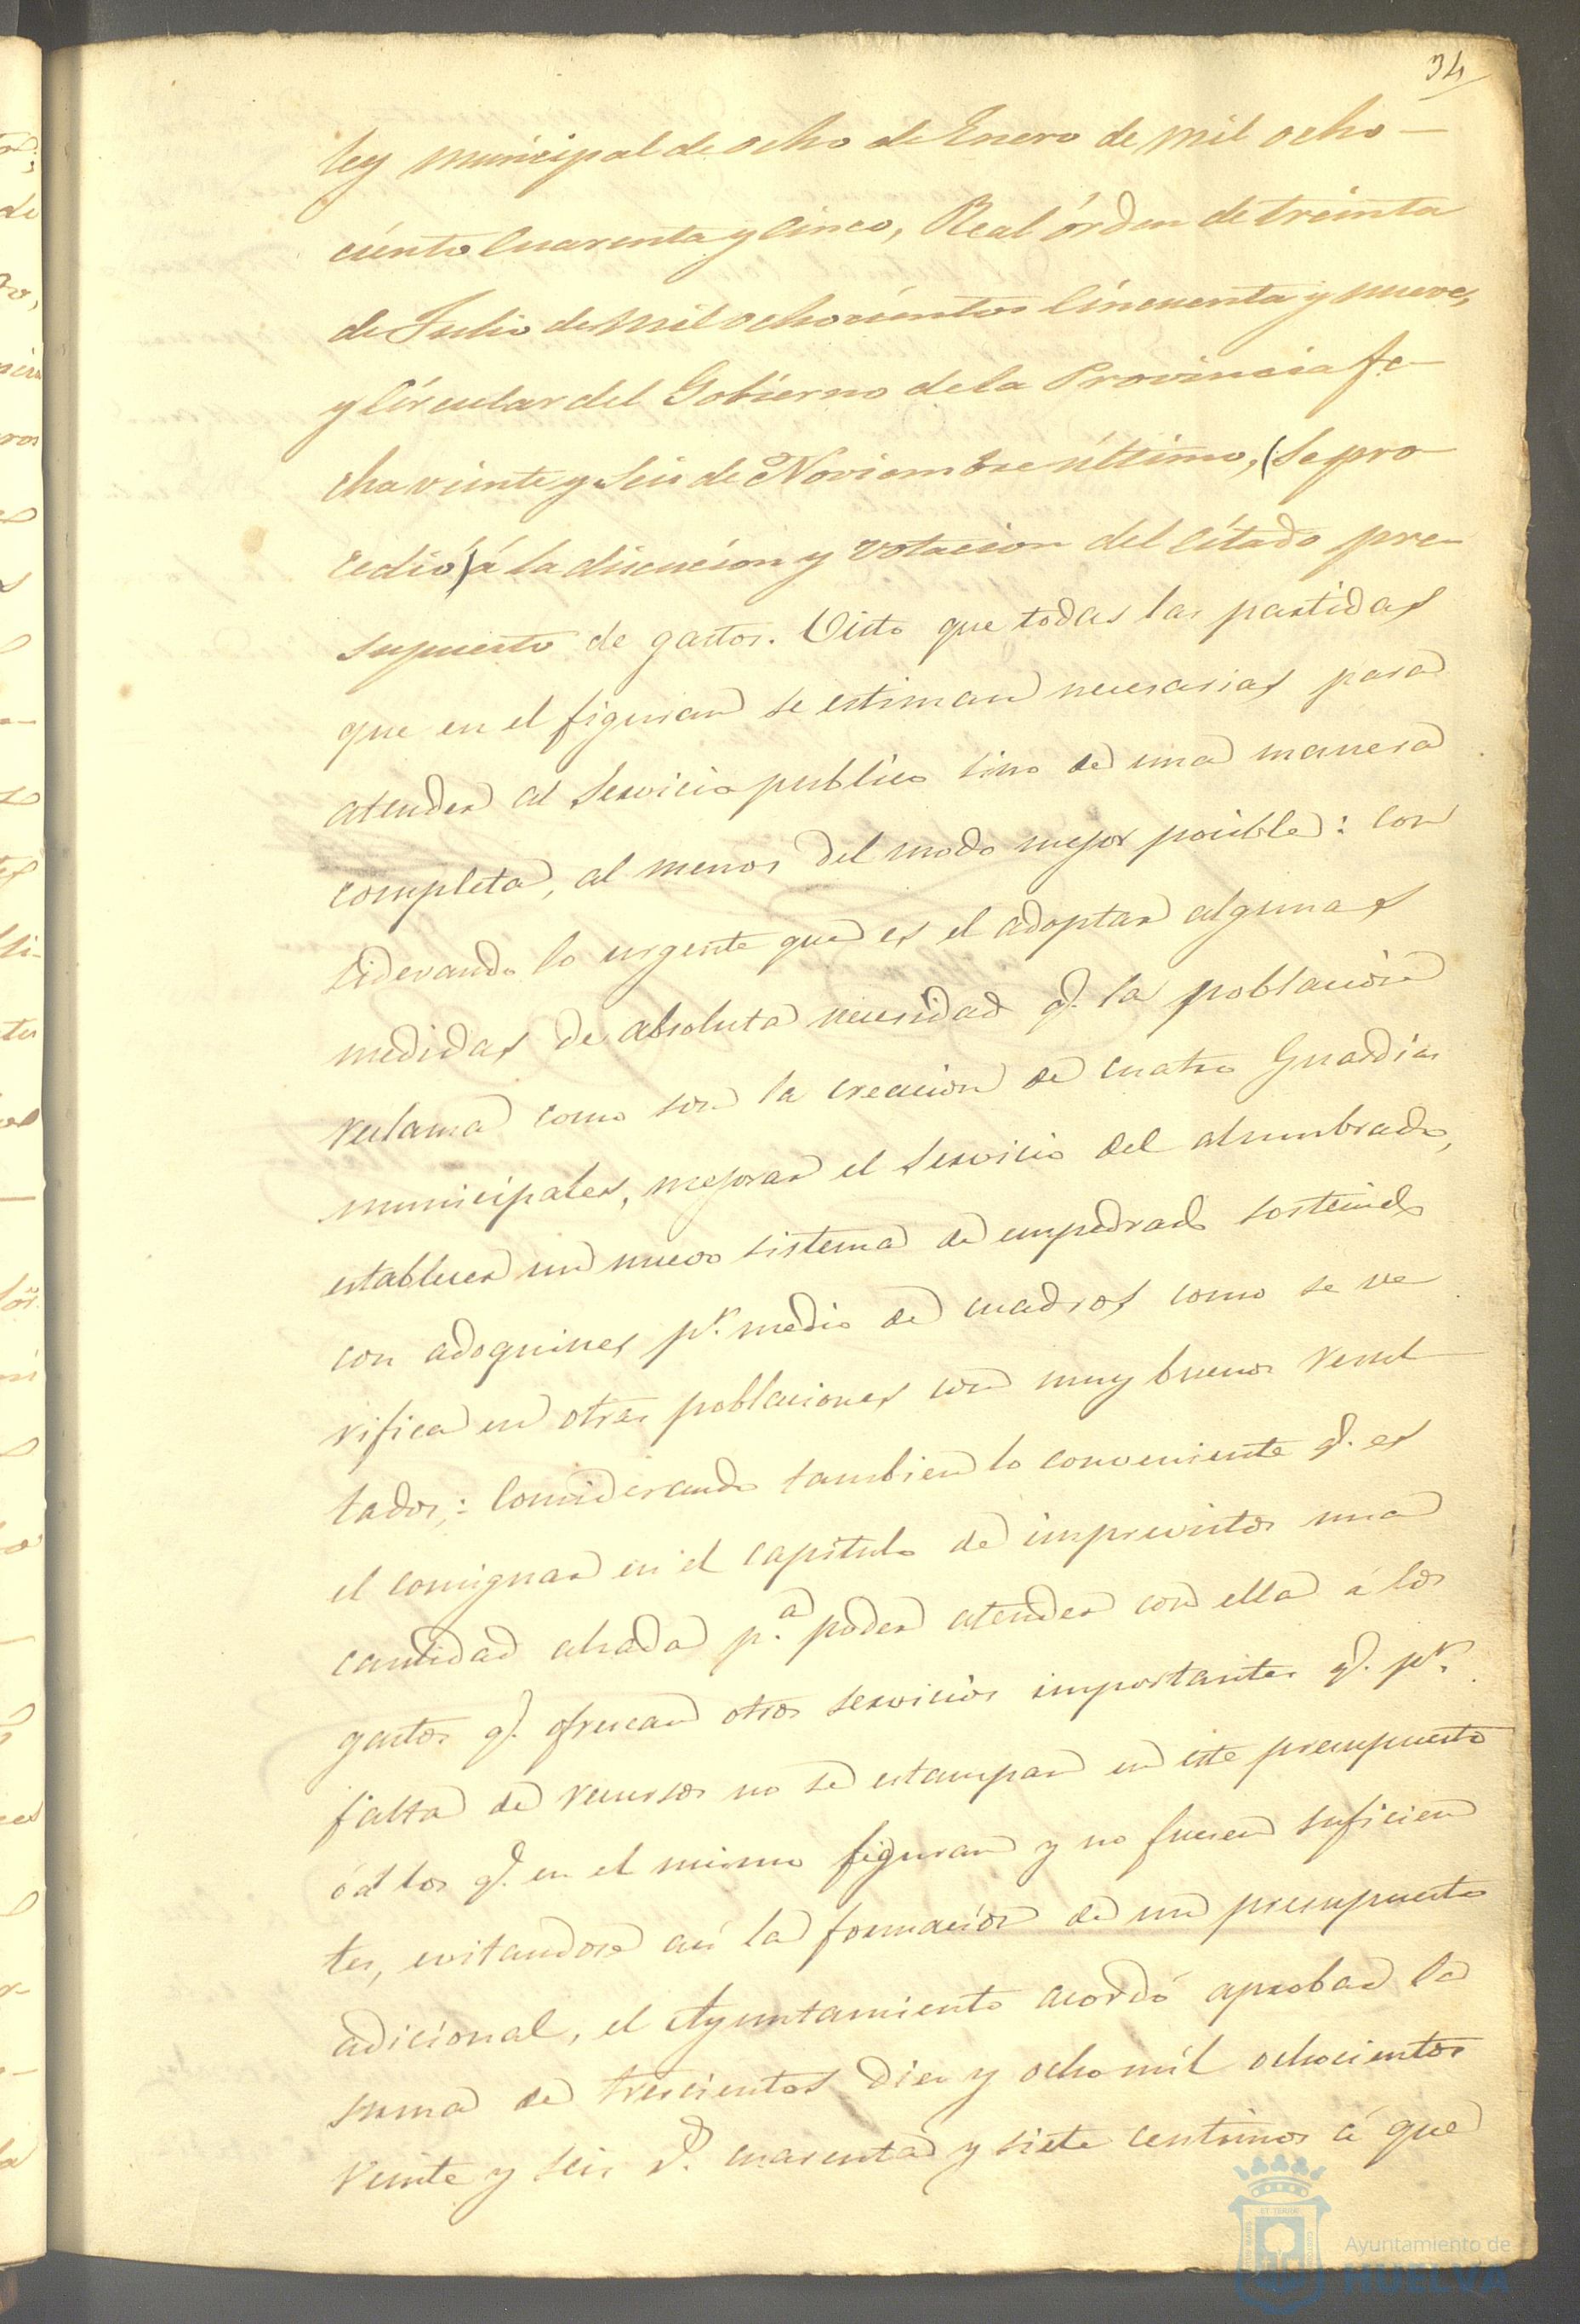 34
ley municipal de ocho de Enero de mil ocho-
ciento Cuarenta y Cinco, Real órden de treinta
de Julio de mil ochocientos Cincuenta y nueve,
y Circular del Gobierno de la Provincia fe-
cha veinte y Seis de Noviembre último, (Se pro-
cedió) á la discucion y votacion del Citado pre-
supuesto de gastos. Visto que todas las partidas
que en el figuran se estiman necesarias para
atender al Servicio publico sino de una manera
completa, al menos del modo mejor posible: con
siderando lo urgente que es el adoptar algunas
medidas de absoluta necesidad q.e la poblacion
reclama como son la creacion de cuatro Guardias
municipales, mejorar el servicio del alumbrado,
establecer un nuevo sistema de empedrado sostenido
con adoquines p.r medio de cuadros como se ve
rifica en otras poblaciones con muy buenos resul
tados,: Considerando tambien lo conveniente q.e es
el consignar en el capitulo de imprevistos una
cantidad alzada p.a poder atender con ella á los
gastos q.e ofrezcan otros servicios importantes q.e p.r
falta de recursos no se estampan en este presupuesto
ó á los q.e en el mismo figuran y no fueren suficien
tes, evitandose asi la formacion de un presupuesto
adicional, el Ayuntamiento acordó aprobar la
suma de trescientos diez y ocho mil ochocientos
veinte y seis r.s cuarenta y siete centimos á que
Ayuntamiento de
HUELVA